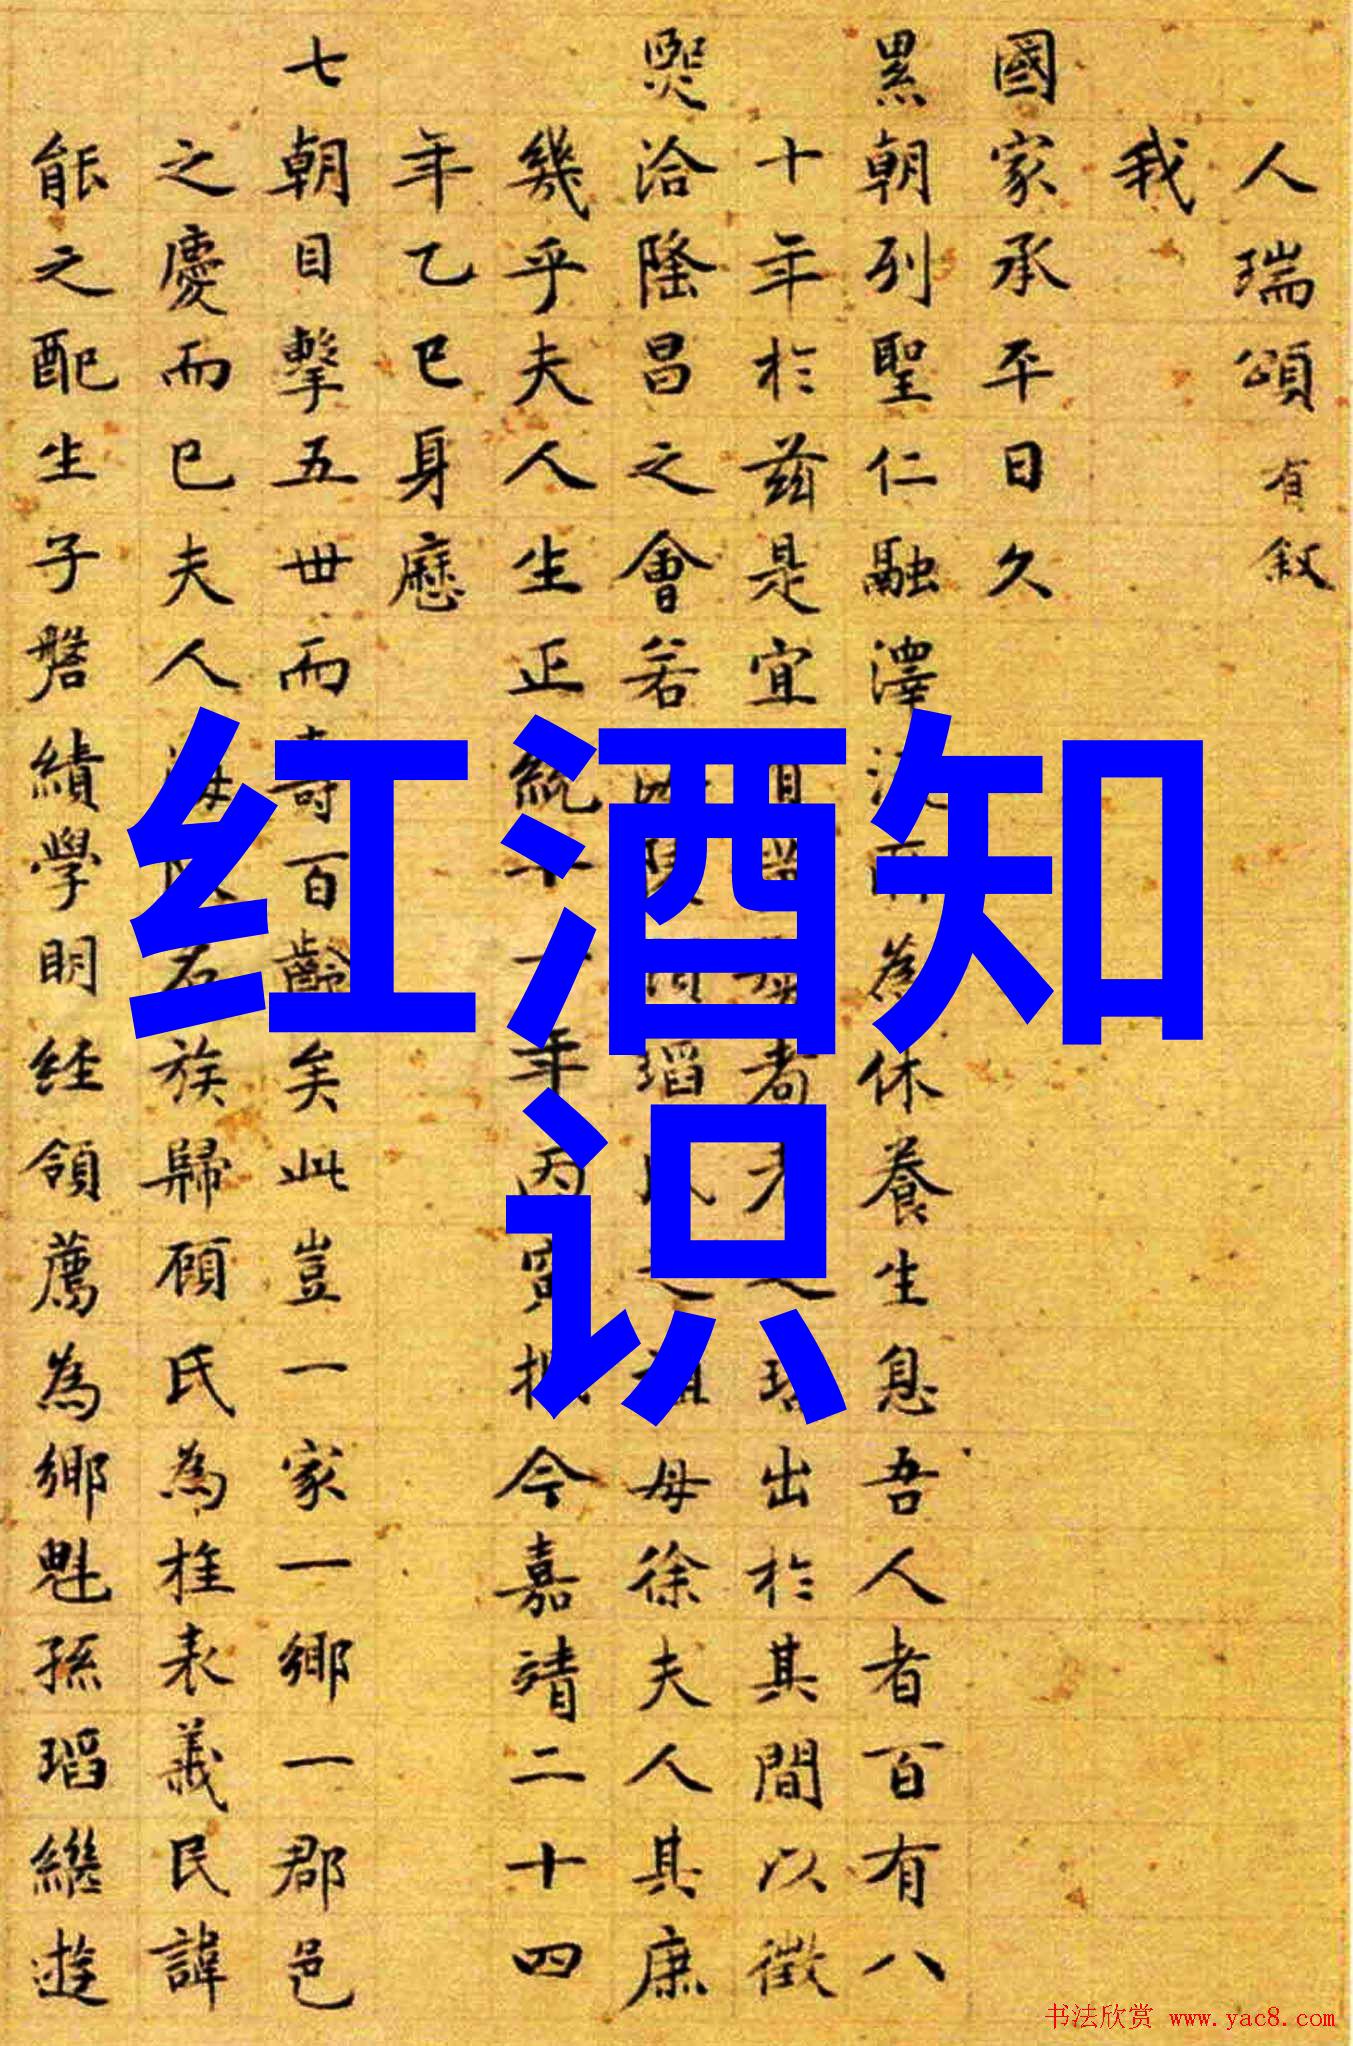 人瑞頌有叙
我
國家承平日久
累朝列聖仁融澤為休養生息吾人者百有八
十年於兹是宜者出於其間以徵
熙洽隆昌之會若母徐夫人其庶
幾乎夫人生正統十一年丙寅抵今嘉靖二十四
年乙巳身歷
七朝目擊五世而壽百齡矣此豈一家一鄉一郡邑
之慶而已夫人族歸顧氏為桂表義民諱
能之配生子磐績學明經領薦為鄉魁孫瑫繼遊
红酒知
识
书法欣赏 www.yac8.com